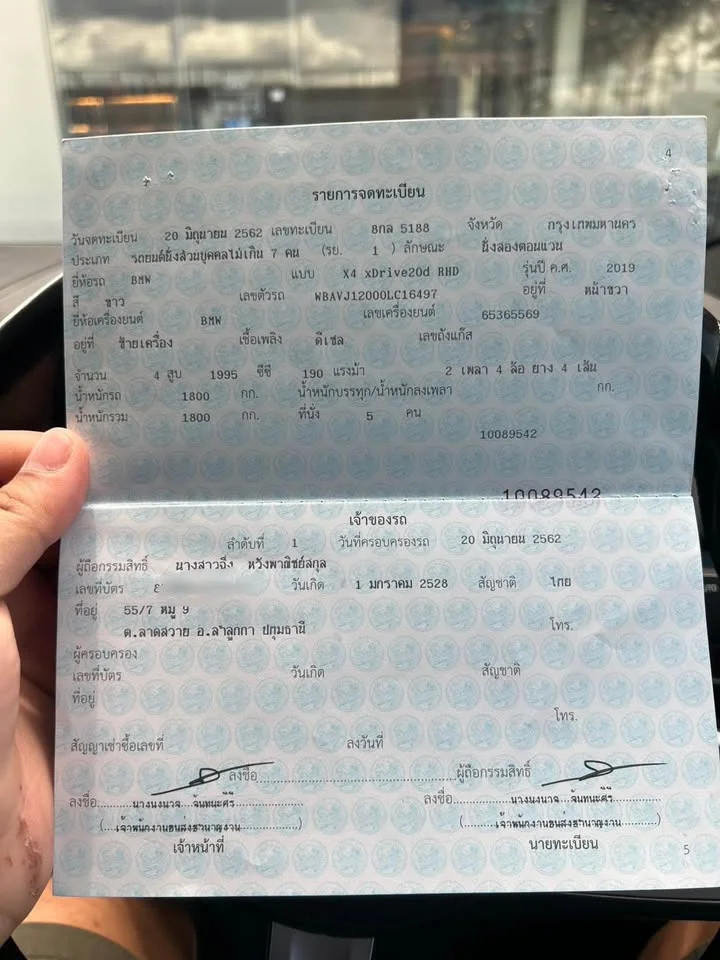 4
รายการจดทะเบียน
วันจดทะเบียน 20 มิถุนายน 2562 เลขทะเบียน 8กล 5188 จังหวัด กรุงเทพมหานคร
ประเภท รถยนต์นั่งส่วนบุคคลไม่เกิน 7 คน (รย. 1 ) ลักษณะ นั่งสองตอนแวน
ยี่ห้อรถ BMW แบบ X4 xDrive20d RHD รุ่นปี ค.ศ. 2019
สี ขาว เลขตัวรถ WBAVJ12000LC16497 อยู่ที่ หน้าขวา
ยี่ห้อเครื่องยนต์ BMW เลขเครื่องยนต์ 65365569
อยู่ที่ ซ้ายเครื่อง เชื้อเพลิง ดีเซล เลขถังแก๊ส
จำนวน 4 สูบ 1995 ซีซี 190 แรงม้า 2 เพลา 4 ล้อ ยาง 4 เส้น
น้ำหนักรถ 1800 กก. น้ำหนักบรรทุก/น้ำหนักลงเพลา กก.
น้ำหนักรวม 1800 กก. ที่นั่ง 5 คน
10089542
10089542
เจ้าของรถ
ลำดับที่ 1 วันที่ครอบครองรถ 20 มิถุนายน 2562
ผู้ถือกรรมสิทธิ์ นางสาวฉิ่ง หวังพาณิชย์สกุล
เลขที่บัตร วันเกิด 1 มกราคม 2528 สัญชาติ ไทย
ที่อยู่ 55/7 หมู่ 9
ต.ลาดสวาย อ.ลำลูกกา ปทุมธานี โทร.
ผู้ครอบครอง
เลขที่บัตร วันเกิด สัญชาติ
ที่อยู่
โทร.
สัญญาเช่าซื้อเลขที่ ลงวันที่
ลงชื่อ ผู้ถือกรรมสิทธิ์
ลงชื่อ นางนงนาจ จันทนะศิริ ลงชื่อ นางนงนาจ จันทนะศิริ
(เจ้าพนักงานขนส่งชำนาญงาน) (เจ้าพนักงานขนส่งชำนาญงาน)
เจ้าหน้าที่ นายทะเบียน
5